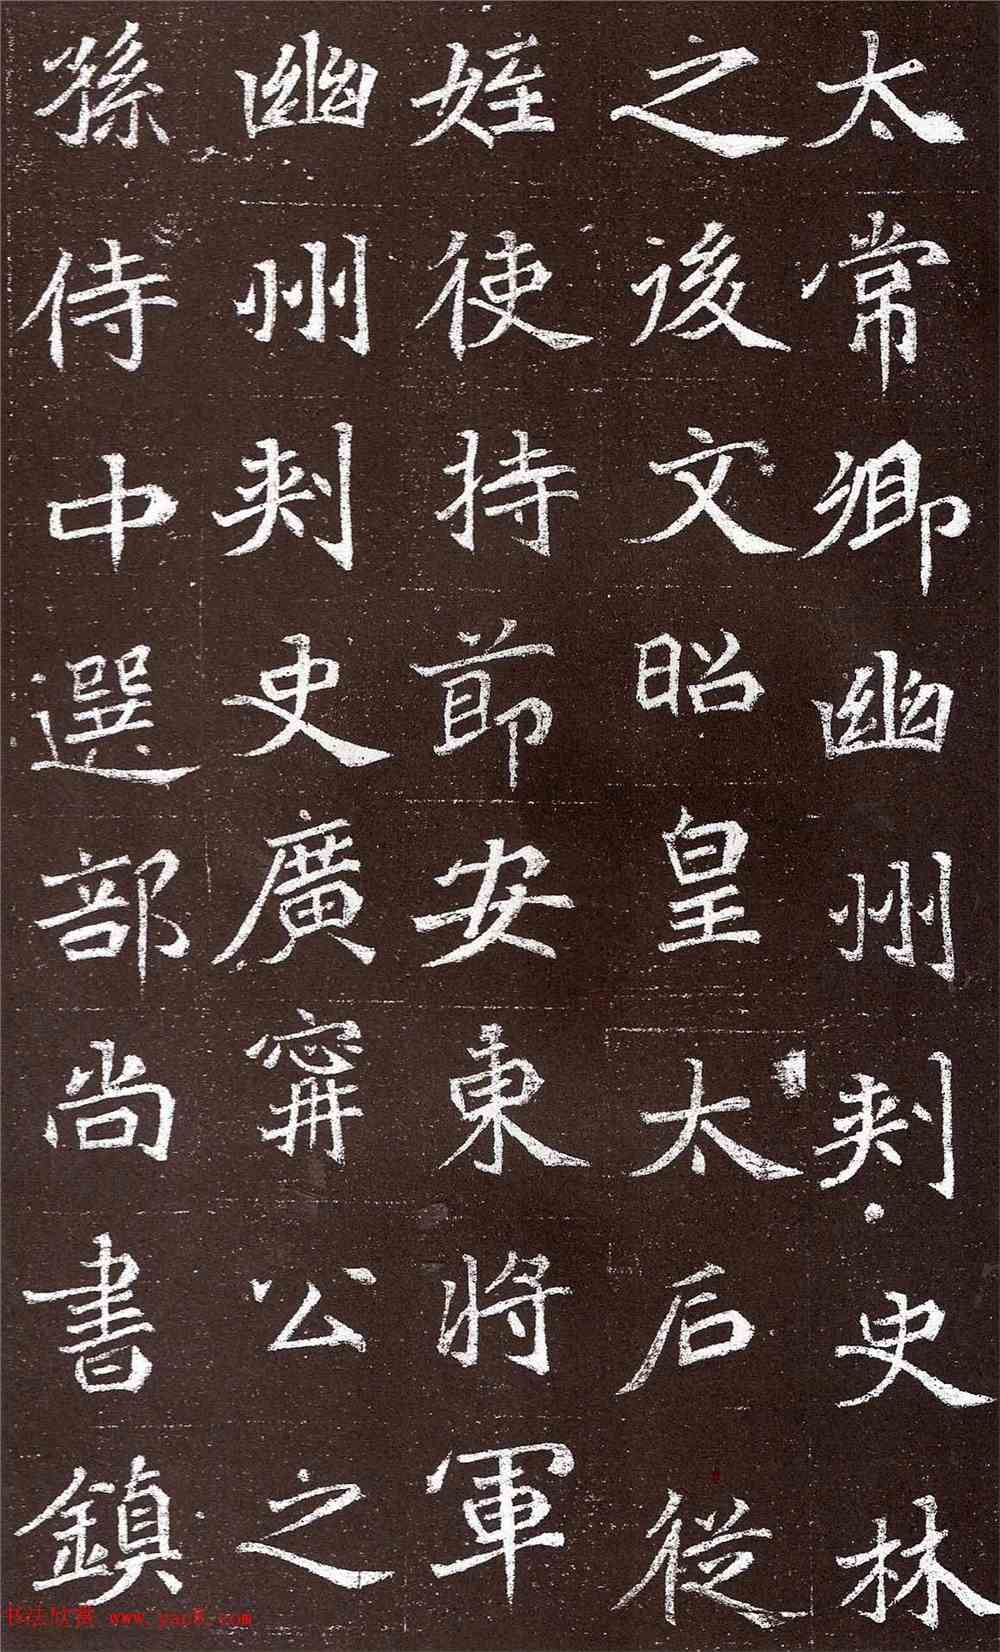 太常卿幽州刾史林
之後文昭皇太后從
姪使持莭安東將軍
幽州刾史廣寗公之
孫侍中選部尚書鎮
书法欣赏 www.yac8.com